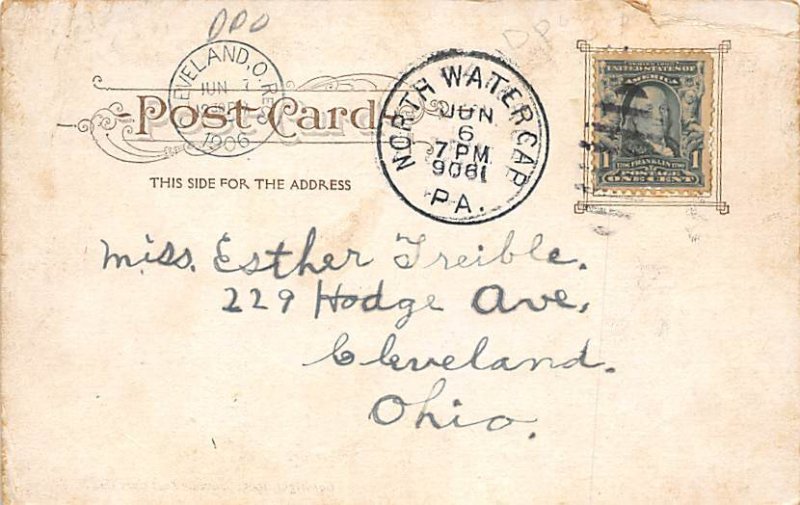 DPO
CLEVELAND, O. REC'D
JUN 7
1906
NORTH WATER GAP
JUN
6
7 PM
9061
PA.
UNITED STATES OF
1 FRANKLIN 1
POSTAGE
ONE CENT
Post Card
THIS SIDE FOR THE ADDRESS
Miss. Esther Treible.
229 Hodge Ave,
Cleveland.
Ohio.